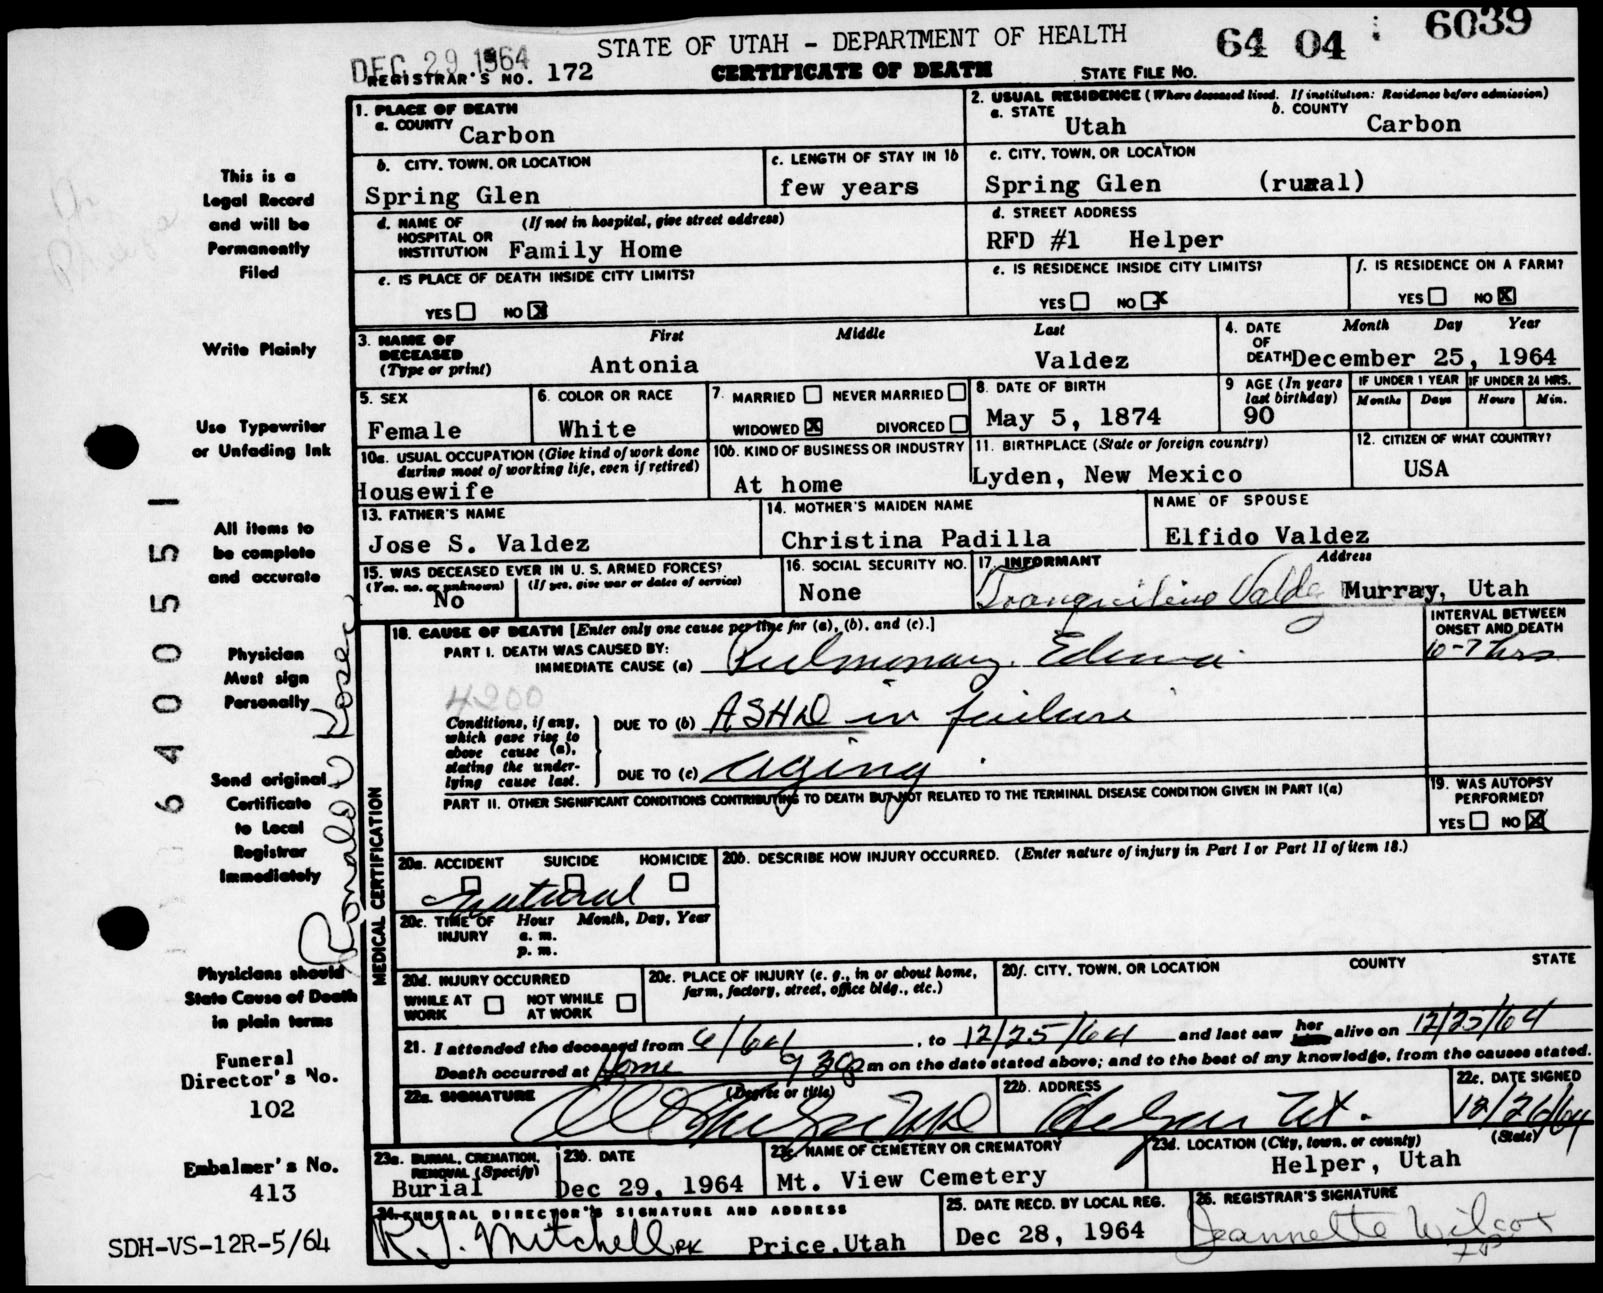 DEC 29 1964
STATE OF UTAH - DEPARTMENT OF HEALTH
64 04 6039
REGISTRAR'S NO. 172
CERTIFICATE OF DEATH
STATE FILE NO.
1. PLACE OF DEATH
a. COUNTY Carbon
2. USUAL RESIDENCE (Where deceased lived. If institution: Residence before admission)
a. STATE Utah
b. COUNTY Carbon
b. CITY, TOWN, OR LOCATION
Spring Glen
c. LENGTH OF STAY IN 1b
few years
c. CITY, TOWN, OR LOCATION
Spring Glen (rural)
d. NAME OF HOSPITAL OR INSTITUTION (If not in hospital, give street address)
Family Home
d. STREET ADDRESS
RFD #1 Helper
e. IS PLACE OF DEATH INSIDE CITY LIMITS?
YES NO X
e. IS RESIDENCE INSIDE CITY LIMITS?
YES NO X
f. IS RESIDENCE ON A FARM?
YES NO X
3. NAME OF DECEASED (Type or print)
First Middle Last
Antonia Valdez
4. DATE OF DEATH Month Day Year
December 25, 1964
5. SEX
Female
6. COLOR OR RACE
White
7. MARRIED NEVER MARRIED
WIDOWED X DIVORCED
8. DATE OF BIRTH
May 5, 1874
9 AGE (In years last birthday)
90
IF UNDER 1 YEAR
Months Days
IF UNDER 24 HRS.
Hours Min.
10a. USUAL OCCUPATION (Give kind of work done during most of working life, even if retired)
Housewife
10b. KIND OF BUSINESS OR INDUSTRY
At home
11. BIRTHPLACE (State or foreign country)
Lyden, New Mexico
12. CITIZEN OF WHAT COUNTRY?
USA
13. FATHER'S NAME
Jose S. Valdez
14. MOTHER'S MAIDEN NAME
Christina Padilla
NAME OF SPOUSE
Elfido Valdez
15. WAS DECEASED EVER IN U. S. ARMED FORCES?
(Yes, no, or unknown) (If yes, give war or dates of service)
No
16. SOCIAL SECURITY NO.
None
17. INFORMANT Address
Tranquilino Valdez Murray, Utah
MEDICAL CERTIFICATION
18. CAUSE OF DEATH [Enter only one cause per line for (a), (b), and (c).]
INTERVAL BETWEEN ONSET AND DEATH
PART I. DEATH WAS CAUSED BY:
IMMEDIATE CAUSE (a) Pulmonary Edema
6-7 hrs
4200
Conditions, if any, which gave rise to above cause (a), stating the underlying cause last.
DUE TO (b) ASHD in failure
DUE TO (c) aging
PART II. OTHER SIGNIFICANT CONDITIONS CONTRIBUTING TO DEATH BUT NOT RELATED TO THE TERMINAL DISEASE CONDITION GIVEN IN PART I(a)
19. WAS AUTOPSY PERFORMED?
YES NO X
20a. ACCIDENT SUICIDE HOMICIDE
natural
20b. DESCRIBE HOW INJURY OCCURRED. (Enter nature of injury in Part I or Part II of item 18.)
20c. TIME OF INJURY Hour Month, Day, Year
a. m.
p. m.
20d. INJURY OCCURRED
WHILE AT WORK NOT WHILE AT WORK
20e. PLACE OF INJURY (e. g., in or about home, farm, factory, street, office bldg., etc.)
20f. CITY, TOWN, OR LOCATION COUNTY STATE
21. I attended the deceased from 6/64, to 12/25/64 and last saw her alive on 12/25/64
Death occurred at Home 9 30p m on the date stated above; and to the best of my knowledge, from the causes stated.
22a. SIGNATURE (Degree or title)
22b. ADDRESS
Helper Ut.
22c. DATE SIGNED
12/26/64
23a. BURIAL, CREMATION, REMOVAL (Specify)
Burial
23b. DATE
Dec 29, 1964
23c. NAME OF CEMETERY OR CREMATORY
Mt. View Cemetery
23d. LOCATION (City, town, or county) (State)
Helper, Utah
24. FUNERAL DIRECTOR'S SIGNATURE AND ADDRESS
R.J. Mitchell Price, Utah
25. DATE RECD. BY LOCAL REG.
Dec 28, 1964
26. REGISTRAR'S SIGNATURE
Jeannette Wilcox
This is a
Legal Record
and will be
Permanently
Filed
Write Plainly
Use Typewriter
or Unfading Ink
All items to
be complete
and accurate
Physician
Must sign
Personally
Send original
Certificate
to Local
Registrar
Immediately
Physicians should
State Cause of Death
in plain terms
Funeral
Director's No.
102
Embalmer's No.
413
SDH-VS-12R-5/64
6400551